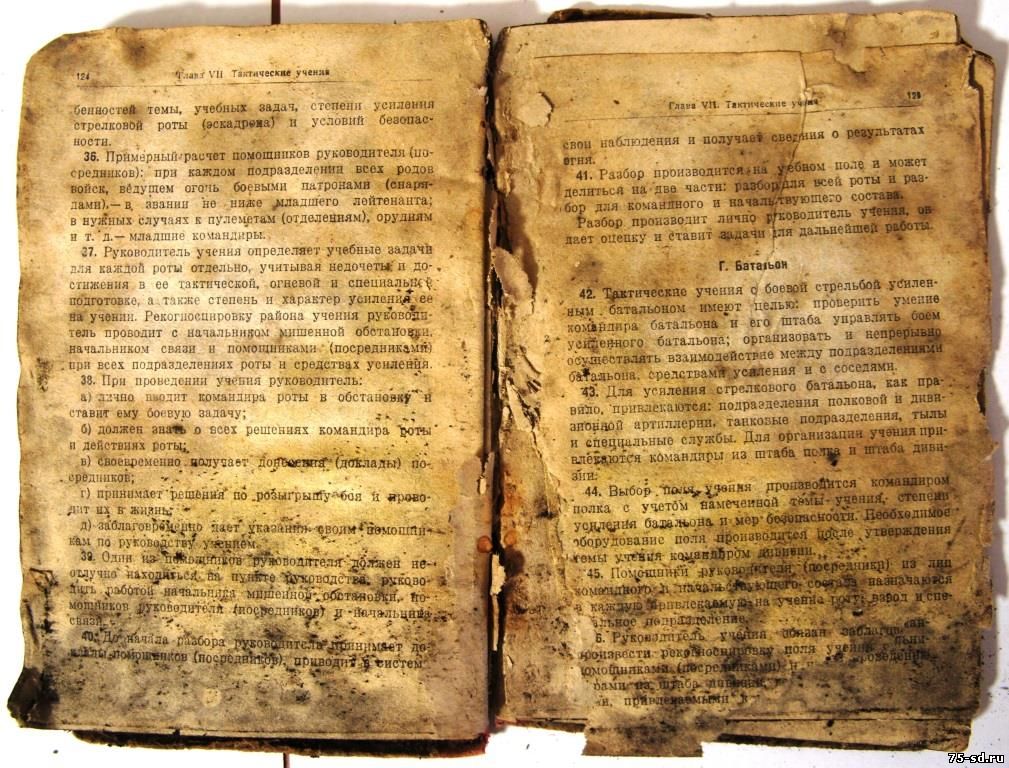 124
Глава VII Тактические учения
бенностей темы, учебных задач, степени усиления
стрелковой роты (эскадрона) и условий безопас-
ности.
36. Примерный расчет помощников руководителя (по-
средников): при каждом подразделении всех родов
войск, ведущем огонь боевыми патронами (снаря-
дами).— в звании не ниже младшего лейтенанта;
в нужных случаях к пулеметам (отделениям), орудиям
и т. д.— младшие командиры.
37. Руководитель учения определяет учебные задачи
для каждой роты отдельно, учитывая недочеты и до-
стижения в ее тактической, огневой и специальной
подготовке, а также степень и характер усиления ее
на учении. Рекогносцировку района учения руководи-
тель проводит с начальником мишенной обстановки,
начальником связи и помощниками (посредниками)
при всех подразделениях роты и средствах усиления.
38. При проведении учения руководитель:
а) лично вводит командира роты в обстановку и
ставит ему боевую задачу;
б) должен знать о всех решениях командира роты
и действиях роты;
в) своевременно получает донесения (доклады) по-
средников;
г) принимает решения по розыгрышу боя и прово-
дит их в жизнь;
д) заблаговременно дает указания своим помощни-
кам по руководству учением.
39. Один из помощников руководителя должен не-
отлучно находиться на пункте руководства, руково-
дить работой начальника мишенной обстановки, по-
мощников руководителя (посредников) и начальника
связи.
40. До начала разбора руководитель принимает до-
клады помощников (посредников), приводит в систем
Глава VII. Тактические учения
125
свои наблюдения и получает сведения о результатах
огня.
41. Разбор производится на учебном поле и может
делиться на две части: разбор для всей роты и раз-
бор для командного и начальствующего состава.
Разбор производит лично руководитель учения, он
дает оценку и ставит задачи для дальнейшей работы.
Г. Батальон
42. Тактические учения с боевой стрельбой усилен-
ным батальоном имеют целью: проверить умение
командира батальона и его штаба управлять боем
усиленного батальона; организовать и непрерывно
осуществлять взаимодействие между подразделениями
батальона, средствами усиления и с соседями.
43. Для усиления стрелкового батальона, как пра-
вило, привлекаются: подразделения полковой и диви-
зионной артиллерии, танковые подразделения, тылы
и специальные службы. Для организации учения при-
влекаются командиры из штаба полка и штаба диви-
зии.
44. Выбор поля учения производится командиром
полка с учетом намеченной темы учения, степени
усиления батальона и мер безопасности. Необходимое
оборудование поля производится после утверждения
темы учения командиром дивизии.
45. Помощники руководителя (посредники) из лиц
командного и начальствующего состава назначаются
в каждую привлекаемую на учение роту, взвод и спе-
альное подразделение.
6. Руководитель учения обязан заблаговремен-
произвести рекогносцировку поля учений
помощниками (посредниками) и
рами из штаба дивизии,
и, привлекаемыми к
75-sd.ru